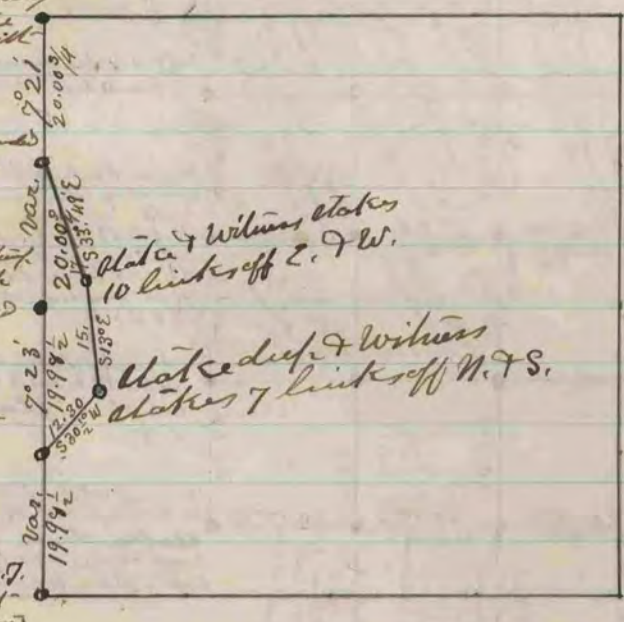 7° 21'
20.00 3/4
Var.
20.00°
S 33° 49' E
Stake & Witness stakes
10 links off E. & W.
15.
S 13° E
7° 23'
19.99 1/2
Stake deep & Witness
stakes 7 links off N. & S.
12.30
Var.
19.99 1/2